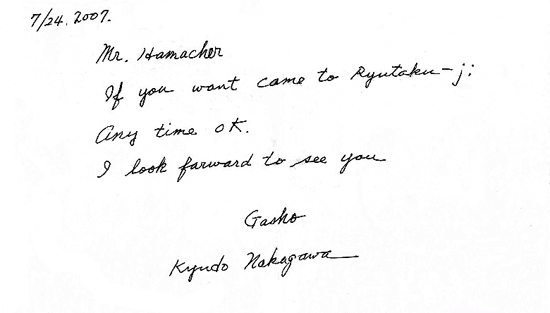 7/24.2007.
Mr. Hamacher
If you want came to Ryutaku-ji
Any time OK.
I look farward to see you
Gasho
Kyudo Nakagawa